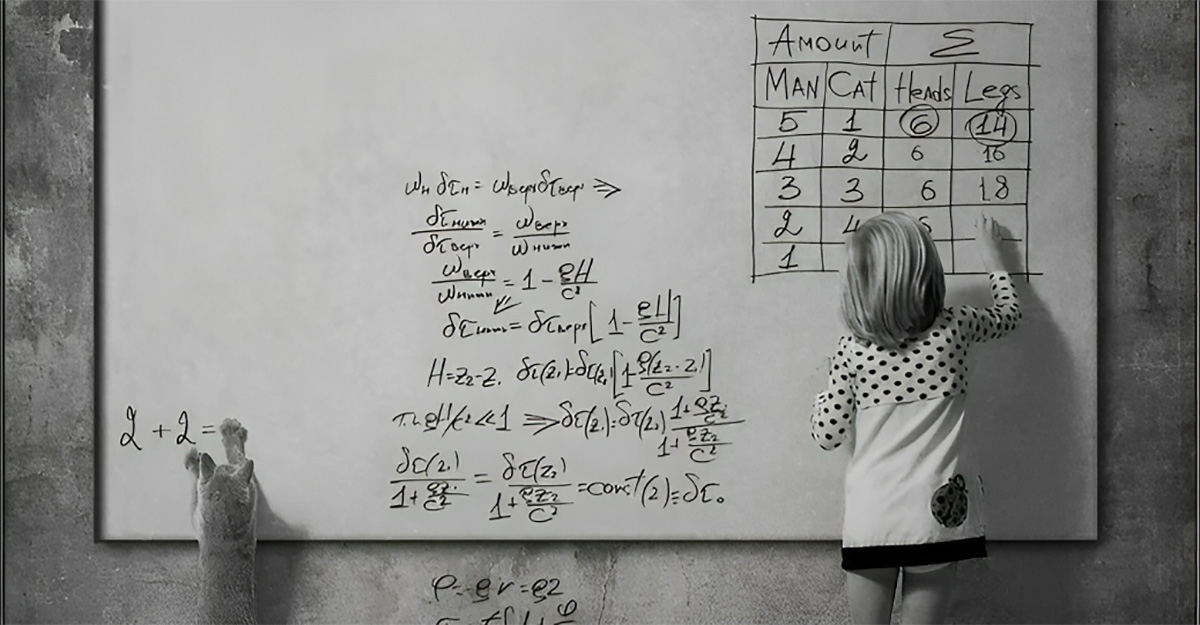 Amount Σ
Man Cat Heads Legs
5 1 6 14
4 2 6 16
3 3 6 18
2 4
1
ωн δτн = ωверх δτверх ⇒
δτнижн / δτверх = ωверх / ωнижн
ωверх / ωнижн = 1 - gH / c²
δτнижн = δτверх [1 - gH / c²]
H = z₂ - z₁ δτ(z₁) = δτ(z₂) [1 - g(z₂ - z₁) / c²]
gH/c² << 1 ⇒ δτ(z₁) = δτ(z₂) 1 + gz₁ / c² / 1 + gz₂ / c²
2 + 2 =
δτ(z₁) / 1 + gz₁ / c² = δτ(z₂) / 1 + gz₂ / c² = const(z) = δτ₀
φ = gr = gz